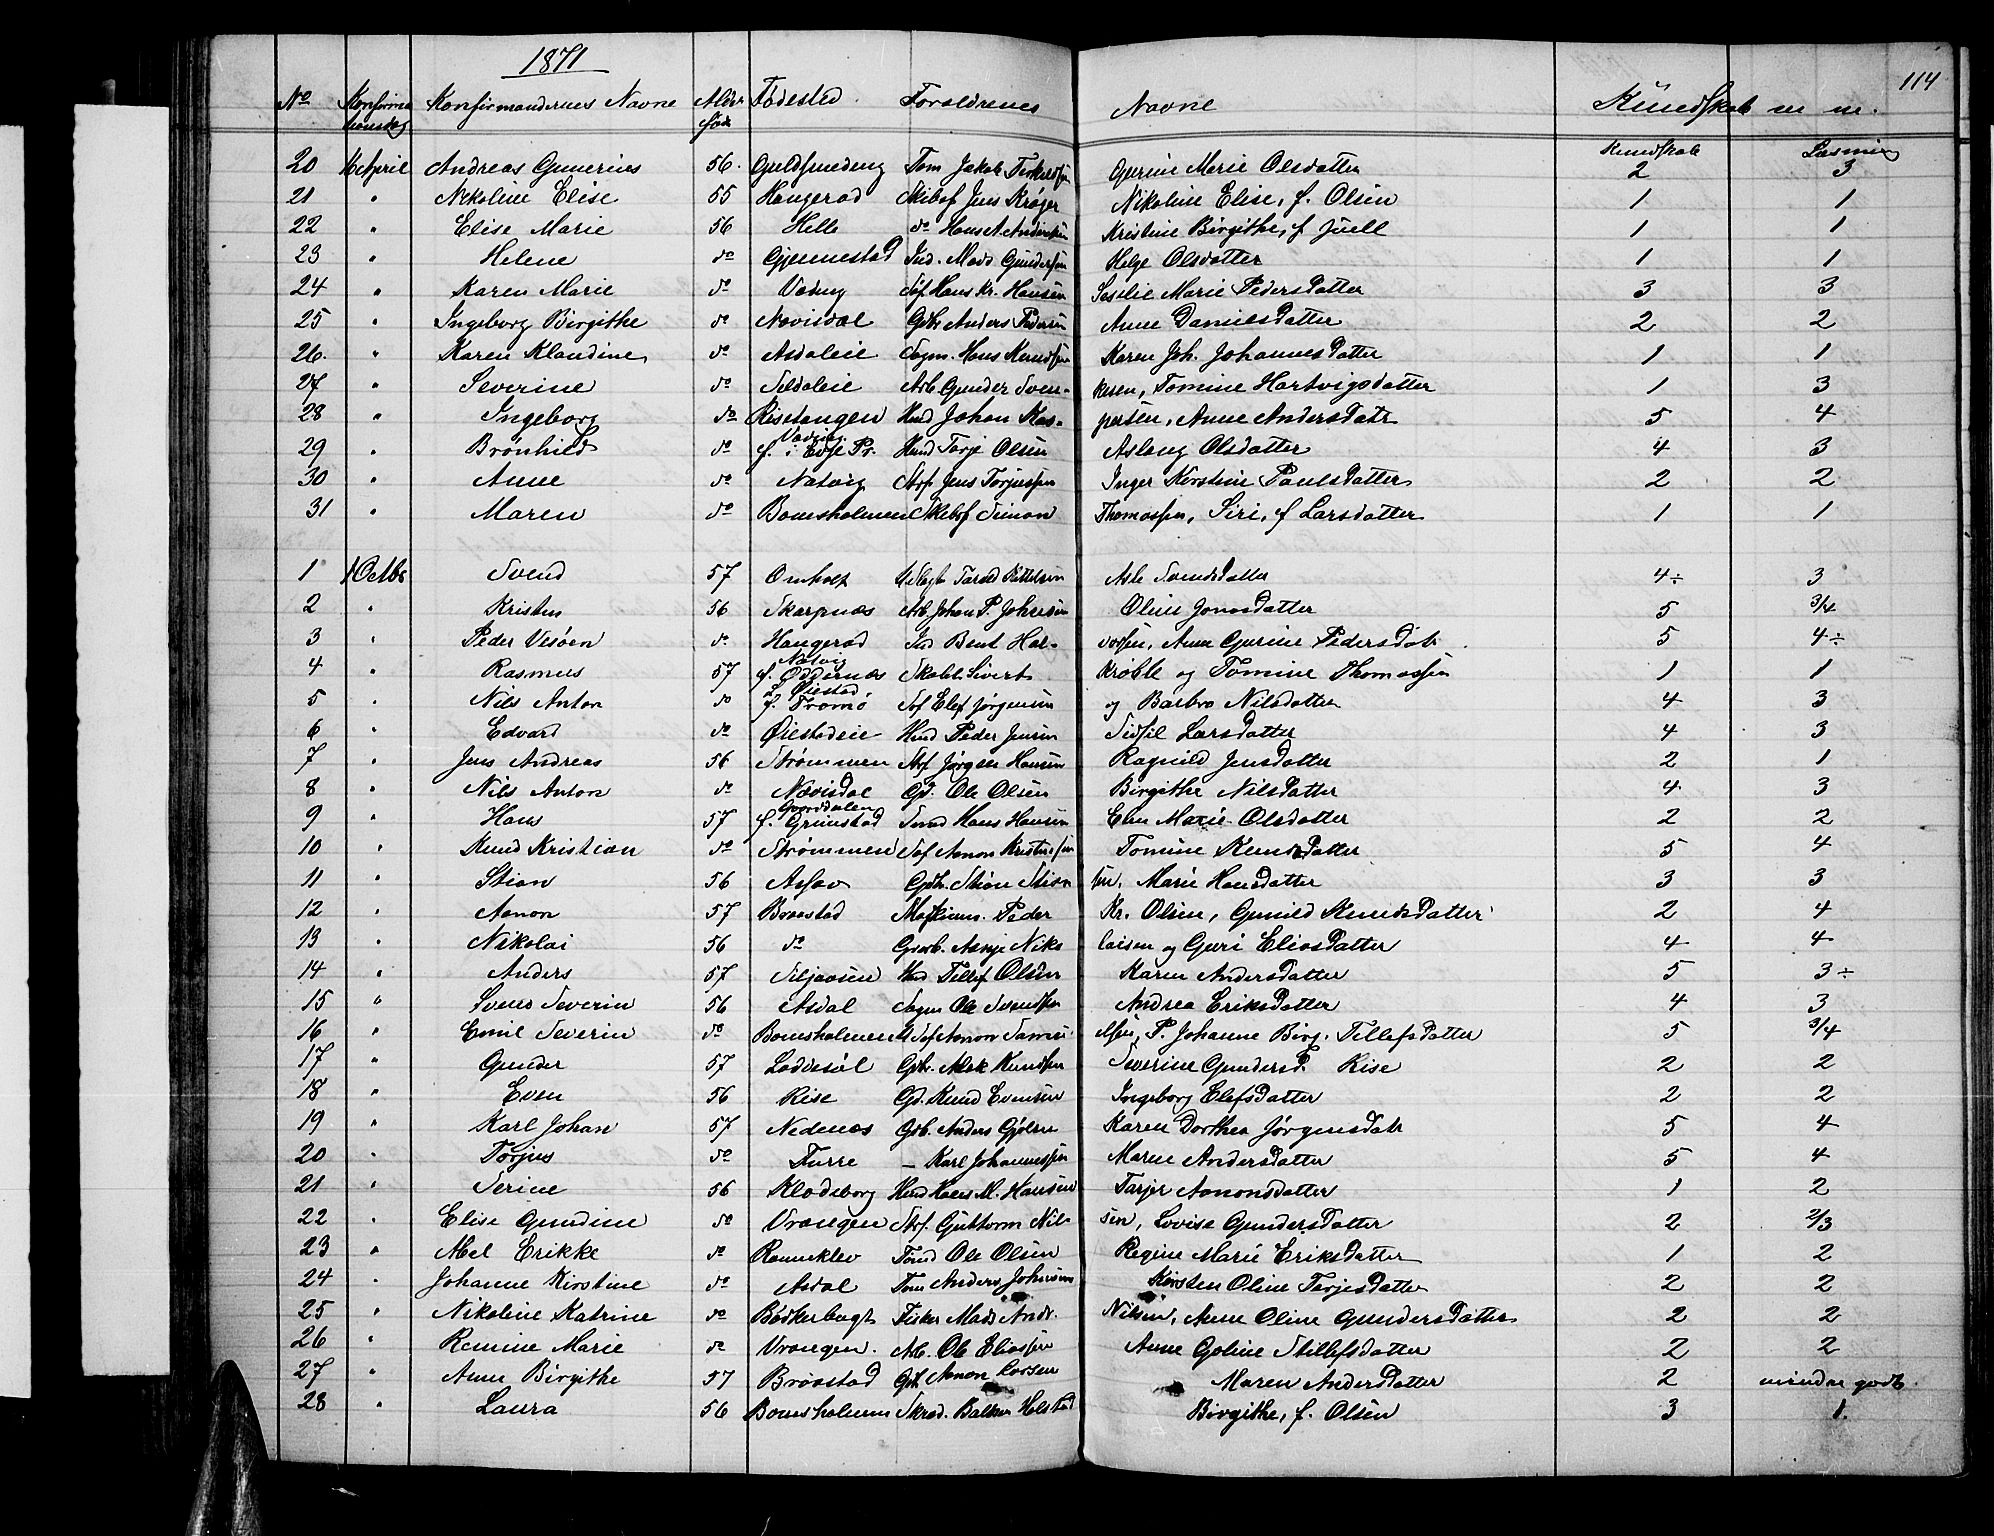 1871
114
No Konfirmationsdag Konfirmandernes Navne Alder født Fødested. Forældrenes Navne Kundskab m m.
Kundskab Læsning
20 16 April Andreas Gunerius 56. Guldsmedeng Tøm Jakob Terkelsen Gurine Marie Olsdatter 2 3
21 " Nikoline Elise 55 Haugerød Skibsf Jens Krøger Nikoline Elise, f. Olsen 1 1
22 " Elise Marie 56 Helle do Hans A Andersen Kristine Birgithe, f Juell 1 1
23 " Helene do Gjennestad Ind. Mads Gundersen Helge Olsdatter 1 1
24 " Karen Marie do Søf Hans Kr. Hansen Sesilie Marie Pedersdatter 3 3
25 " Ingeborg Birgithe do Nævisdal Gdbr Anders Pedersen Anne Danielsdatter 2 2
26. " Karen Klaudine do Asdaleie Sagm. Hans Knudsen Karen Joh. Johannesdatter 1 1
27 " Severine do Seldaleie Arb Gunder Sven- kesen, Tomine Hartvigsdatter 1 3
28 " Ingeborg do Risetangen Hmd Johan Kas- persen, Anne Andersdatr 5 4
29 " Brønhild do f. i Evje Pr. Hmd Tarje Olsen Aslaug Olsdatter 4 3
30 " Anne do Natvig Strf Jens Torjussen Inger Kirstine Paulsdatter 2 2
31 " Maren do Bomsholmen Skibsf Simon Thomassen, Siri, f Larsdatter 1 1
1 1 Octbr Svend 57 Omholt Tarald Kittelsen Asle Svendsdatter 4÷ 3
2 " Kristen 56 Skarpnæs Arb Johan P. Johnsen Oline Jonasdatter 5 3/4
3 " Peder Vesøen do Haugerød Ind Bent Hal- vorsen, Anne Gurine Pedersdatr 5 4÷
4 " Rasmus 57 Natvig f. Oddernæs Skolel. Sivert Krøble og Tomine Thomassen 1 1
5 " Nils Anton do Øiestad f. Tromø Sof Elef Jørgensen og Barbro Nilsdatter 4 3
6 " Edvard do Øiestadeie Hmd Peder Jensen Sidsil Larsdatter 4 3
7 " Jens Andreas 56 Strømmen Strf Jørgen Hansen Ragnild Jensdatter 2 1
8 " Nils Anton do Nævisdal Gd. Ole Olsen Birgithe Nilsdatter 4 3
9 " Hans 57 f. Grimstad Smed Hans Hansen Elen Marie Olsdatter 2 2
10 " Knud Kristian do Strømmen Søf Aanon Kristensen Tomine Knudsdatter 5 4
11 " Stian 56 Assav Gdbr. Stian Stian sen, Marie Hansdatter 3 3
12 " Aanon 57 Braastad Maskinm. Peder Kr. Olsen, Gunild Knudsdatter 2 4
13 " Nikolai 56 do Grub. Aanje Niko laisen og Guri Eliasdatter 4 4
14 " Anders 57 Hmd Tellef Olsen Karen Andersdatter 5 3÷
15 " Svend Severin 56 Asdal Sagm Ole Svendsen Andrea Eriksdatter 4 3
16 " Emil Severin do Bomsholmen Søf Aanon Samu elsen, P. Johanne Birg. Tellefsdatter 5 3/4
17 " Gunder 57 Løddesøl Gdbr. Aslak Knudsen Severine Gundersd. Rise 2 2
18 " Even 56 Rise Gd. Knud Evensen Ingeborg Elefsdatter 2 2
19 " Karl Johan 57 Nedenæs Gdb. Anders Gjølsen Karen Dorthea Jørgensdatr 5 4
20 " Torjus do Furre — Karl Johannessen Maren Andersdatter 5 4
21 " Serine 56 Klodeborg Hmd Hans M. Hansen Tarjer Aanonsdatter 1 2
22 " Elise Gundine do Vrangen Strf. Guttorm Nil- sen, Lovise Gundersdatter 2 2/3
23 " Abel Erikke do Ranneklev Tømd Ole Olsen Regine Marie Eriksdatter 1 2
24 " Johanne Kirstine do Asdal Tøm Anders Johnsen Kirsten Oline Tarjesdatter 2 2
25 " Nikoline Katrine do Bødkerbugt Fisker Mads Andr. Nilsen, Anne Oline Gundersdatter 2 2
26 " Remine Marie do Vrangen. Arb. Ole Eliassen Anne Goline Stillefsdatter 2 2
27 " Anne Birgithe 57 Braastad Gdb Aanon Larsen Maren Andersdatter 2 mindre godt
28 " Laura 56 Bomsholmen Skræd. Balser Holstad Birgithe, f. Olsen 3 1.